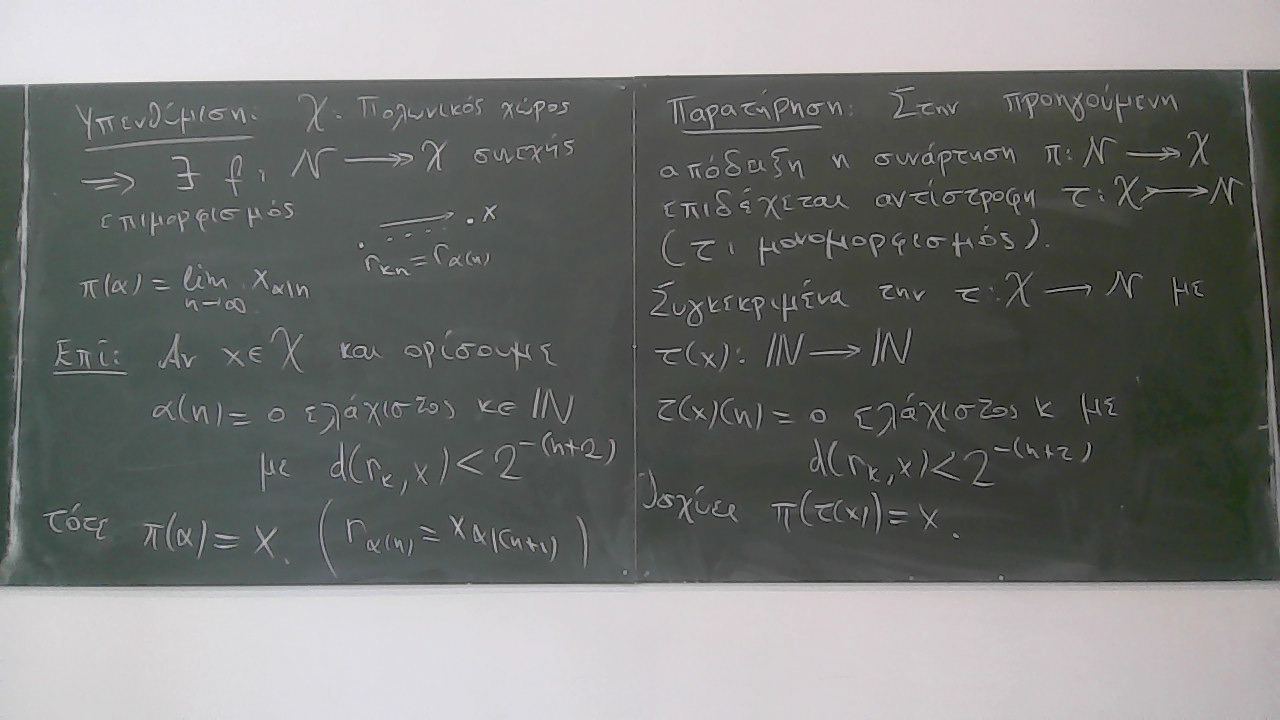 Υπενθύμιση: 𝒳 : Πολωνικός χώρος
⟹ ∃ f : 𝒩 ↠ 𝒳 συνεχής
επιμορφισμός
. x
r_{k_n} = r_{α(n)}
π(α) = lim_{n→∞} x_{α|n}
Επί: Αν x ∈ 𝒳 και ορίσουμε
α(n) = ο ελάχιστος k ∈ ℕ
με d(r_k, x) < 2^{-(n+2)}
τότε π(α) = x. (r_{α(n)} = x_{α|(n+1)})
Παρατήρηση: Στην προηγούμενη
απόδειξη η συνάρτηση π: 𝒩 ↠ 𝒳
επιδέχεται αντίστροφη τ: 𝒳 ↣ 𝒩
(τ : μονομορφισμός).
Συγκεκριμένα την τ: 𝒳 → 𝒩 με
τ(x): ℕ → ℕ
τ(x)(n) = ο ελάχιστος k με
d(r_k, x) < 2^{-(n+2)}
Ισχύει π(τ(x)) = x.